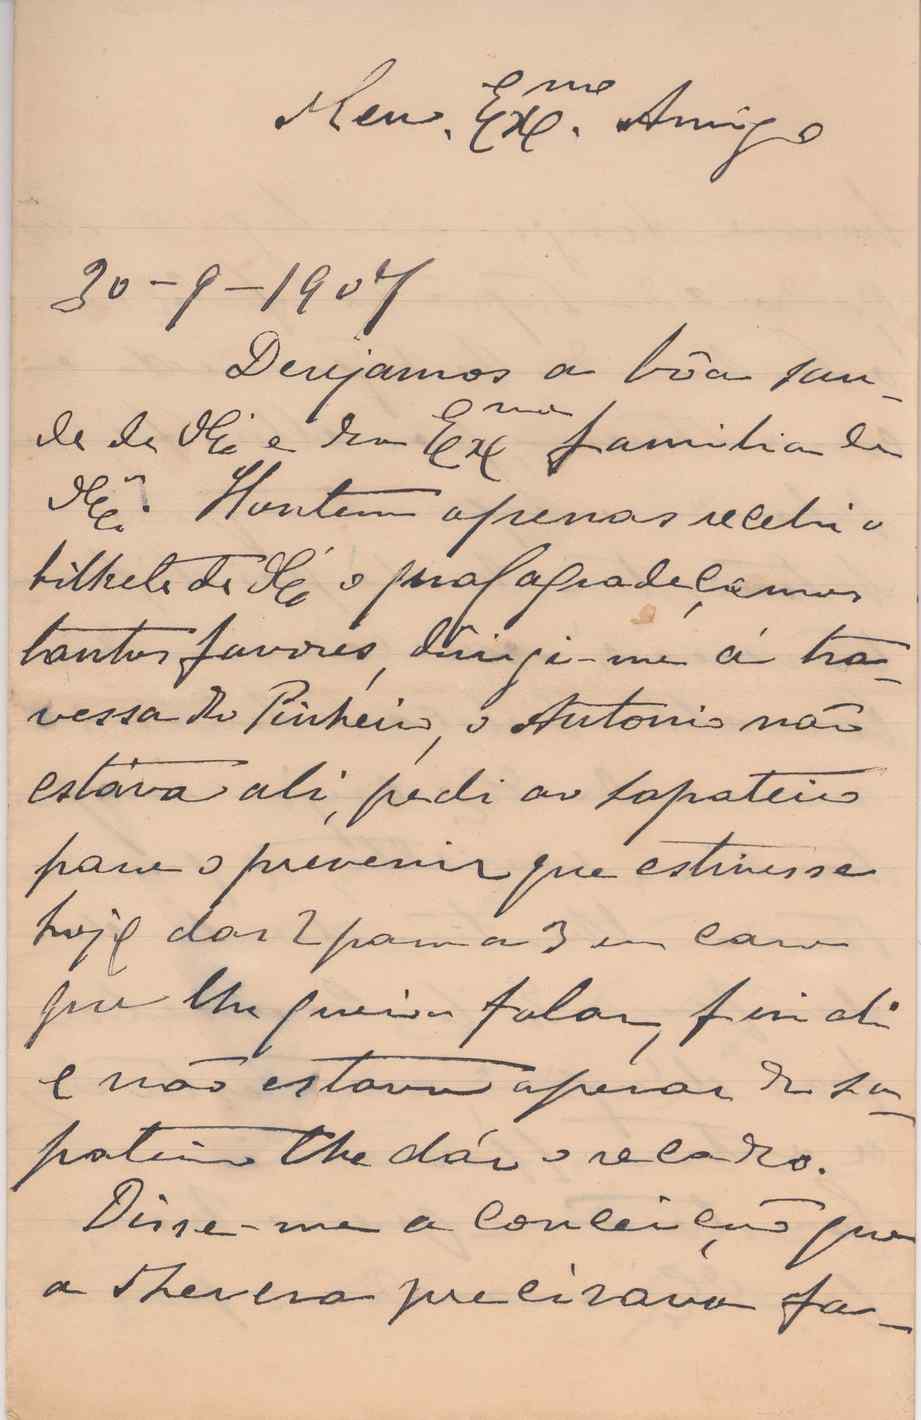 Meu. Exmo. Amigo
30-9-1907
Desejamos a bôa sau-
de de V. Exa e da Exma familia de
V. Exa. Hontem apenas recebi o
bilhete de V. Exa o qual agradeçemos
tantos favores, dirigi-me á tra-
vessa do Pinheiro, o Antonio não
estáva ali, pedi ao sapateiro
para o prevenir que estivesse
hoje das 2 para a 3 em casa
que lhe queria falar, fui ali
e não estava apesar do sa-
pateiro lhe dár o recado.
Disse-me a Conceição que
a Thereza precisava fa-